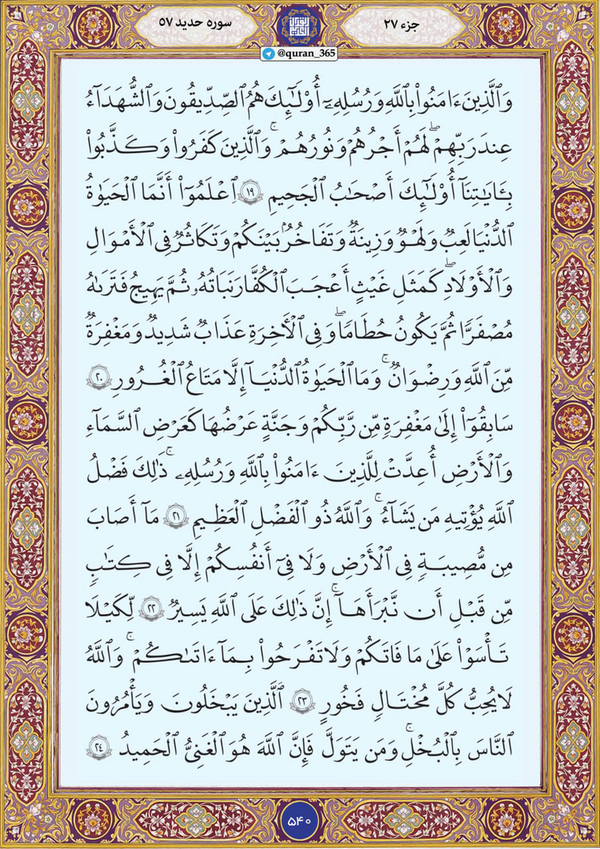 جزء ۲۷
سوره حدید ۵۷
@quran_365
وَٱلَّذِينَ ءَامَنُوا۟ بِٱللَّهِ وَرُسُلِهِۦٓ أُو۟لَـٰٓئِكَ هُمُ ٱلصِّدِّيقُونَ وَٱلشُّهَدَآءُ
عِندَ رَبِّهِمْ لَهُمْ أَجْرُهُمْ وَنُورُهُمْ ۚ وَٱلَّذِينَ كَفَرُوا۟ وَكَذَّبُوا۟
بِـَٔايَـٰتِنَآ أُو۟لَـٰٓئِكَ أَصْحَـٰبُ ٱلْجَحِيمِ ۝۱۹ ٱعْلَمُوٓا۟ أَنَّمَا ٱلْحَيَوٰةُ
ٱلدُّنْيَا لَعِبٌ وَلَهْوٌ وَزِينَةٌ وَتَفَاخُرٌۢ بَيْنَكُمْ وَتَكَاثُرٌ فِى ٱلْأَمْوَٰلِ
وَٱلْأَوْلَـٰدِ ۖ كَمَثَلِ غَيْثٍ أَعْجَبَ ٱلْكُفَّارَ نَبَاتُهُۥ ثُمَّ يَهِيجُ فَتَرَىٰهُ
مُصْفَرًّا ثُمَّ يَكُونُ حُطَـٰمًا ۖ وَفِى ٱلْـَٔاخِرَةِ عَذَابٌ شَدِيدٌ وَمَغْفِرَةٌ
مِّنَ ٱللَّهِ وَرِضْوَٰنٌ ۚ وَمَا ٱلْحَيَوٰةُ ٱلدُّنْيَآ إِلَّا مَتَـٰعُ ٱلْغُرُورِ ۝۲۰
سَابِقُوٓا۟ إِلَىٰ مَغْفِرَةٍ مِّن رَّبِّكُمْ وَجَنَّةٍ عَرْضُهَا كَعَرْضِ ٱلسَّمَآءِ
وَٱلْأَرْضِ أُعِدَّتْ لِلَّذِينَ ءَامَنُوا۟ بِٱللَّهِ وَرُسُلِهِۦ ۚ ذَٰلِكَ فَضْلُ
ٱللَّهِ يُؤْتِيهِ مَن يَشَآءُ ۚ وَٱللَّهُ ذُو ٱلْفَضْلِ ٱلْعَظِيمِ ۝۲۱ مَآ أَصَابَ
مِن مُّصِيبَةٍ فِى ٱلْأَرْضِ وَلَا فِىٓ أَنفُسِكُمْ إِلَّا فِى كِتَـٰبٍ
مِّن قَبْلِ أَن نَّبْرَأَهَآ ۚ إِنَّ ذَٰلِكَ عَلَى ٱللَّهِ يَسِيرٌ ۝۲۲ لِّكَيْلَا
تَأْسَوْا۟ عَلَىٰ مَا فَاتَكُمْ وَلَا تَفْرَحُوا۟ بِمَآ ءَاتَىٰكُمْ ۗ وَٱللَّهُ
لَا يُحِبُّ كُلَّ مُخْتَالٍ فَخُورٍ ۝۲۳ ٱلَّذِينَ يَبْخَلُونَ وَيَأْمُرُونَ
ٱلنَّاسَ بِٱلْبُخْلِ ۗ وَمَن يَتَوَلَّ فَإِنَّ ٱللَّهَ هُوَ ٱلْغَنِىُّ ٱلْحَمِيدُ ۝۲۴
۵۴۰